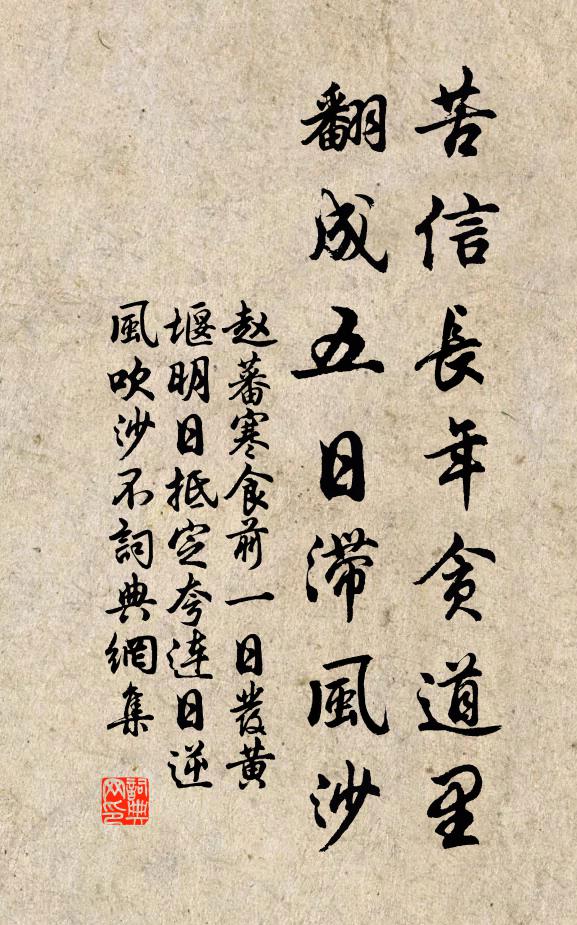 苦信長年貪道里
翻成五日滯風沙
赵蕃寒食前一日發黄
堰明日抵定夸連日逆
風吹沙不詞典網集
詞典
网印